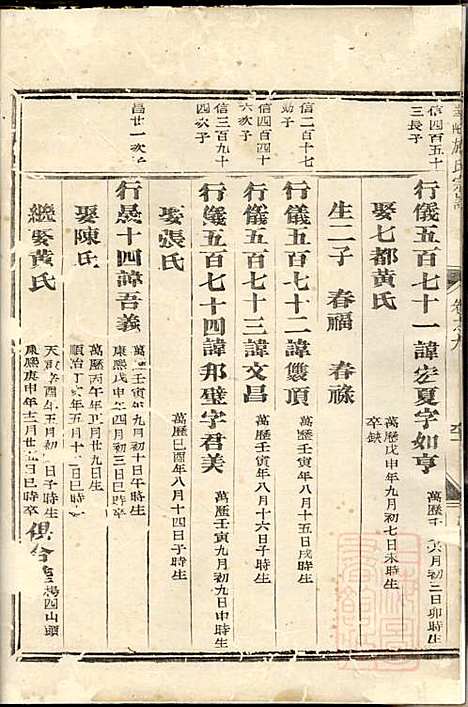 信四百五十
三長子
行儀五百七十一諱宏夏字如亨
萬歷
月初二日卯時生
娶七都黃氏
萬歷戊申年九月初七日未時生
卒缺
生二子 春福 春祿
信二百十七
幼子
行儀五百七十二諱雙頂
萬歷壬寅年八月十五日戌時生
信四百四十
六次子
行儀五百七十三諱文昌
萬歷壬寅年八月十六日子時生
信三百九十
四次子
行儀五百七十四諱邦璧字君美
萬歷壬寅九月初九日申時生
娶張氏
萬歷己酉年八月十四日子時生
昌廿一次子
行愚十四諱吾義
萬歷壬寅年九月初十日午時生
康熙戊申年四月初三日巳時卒
娶陳氏
萬歷丙午年正月廿九日生
順治丁亥年五月十二日巳時卒
繼娶黃氏
天啟癸酉年五月初二日子時生
康熙庚申年十二月廿八日巳時卒
俱合塟
楊四山頭